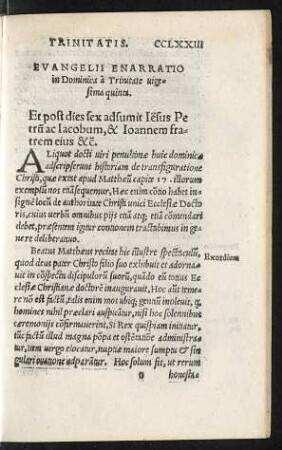 TRINITATIS. CCLXXIII
EVANGELII ENARRATIO
in Dominica à Trinitate uige-
sima quinta.
Et post dies sex adsumit Iesus Pe
trū ac Iacobum, & Ioannem fra-
trem eius &c.
ALiquot docti uiri penultimæ huic dominicæ
adscripserunt historiam de transfiguratione
Christi, quæ extat apud Matthęū capite 17. illorum
exemplū nos etiā sequemur, Hæc enim cōtio habet in-
signē locū de authoritate Christi unici Ecclesiæ Docto
ris, cuius uerbū omnibus pijs etiā atq; etiā cōmendari
debet, præsentem igitur contionem tractabimus in ge-
nere deliberatiuo.
Beatus Matthæus recitat hic illustre spectaculū,
Exordium
quod deus pater Christo filio suo exhibuit et adorna-
uit in cōspectu discipulorū suorū, quādo eū totius Ec
clesiæ Christianæ doctorē inaugurauit, Hoc aūt teme-
re nō est factū, aliàs enim mos ubiq; gentiū inoleuit, q
homines nihil præclari auspicātur, nisi hoc solennibus
ceremonijs cōfirmauerint, Si Rex quispiam initiatur,
tūc factū illud magna pōpa et ostētatiōe administra-
tur, cum uirgo elocatur, nuptiæ maiore sumptu & sin
gulari ouatione adparātur. Hoc solum fit, ut rerum
honesta-